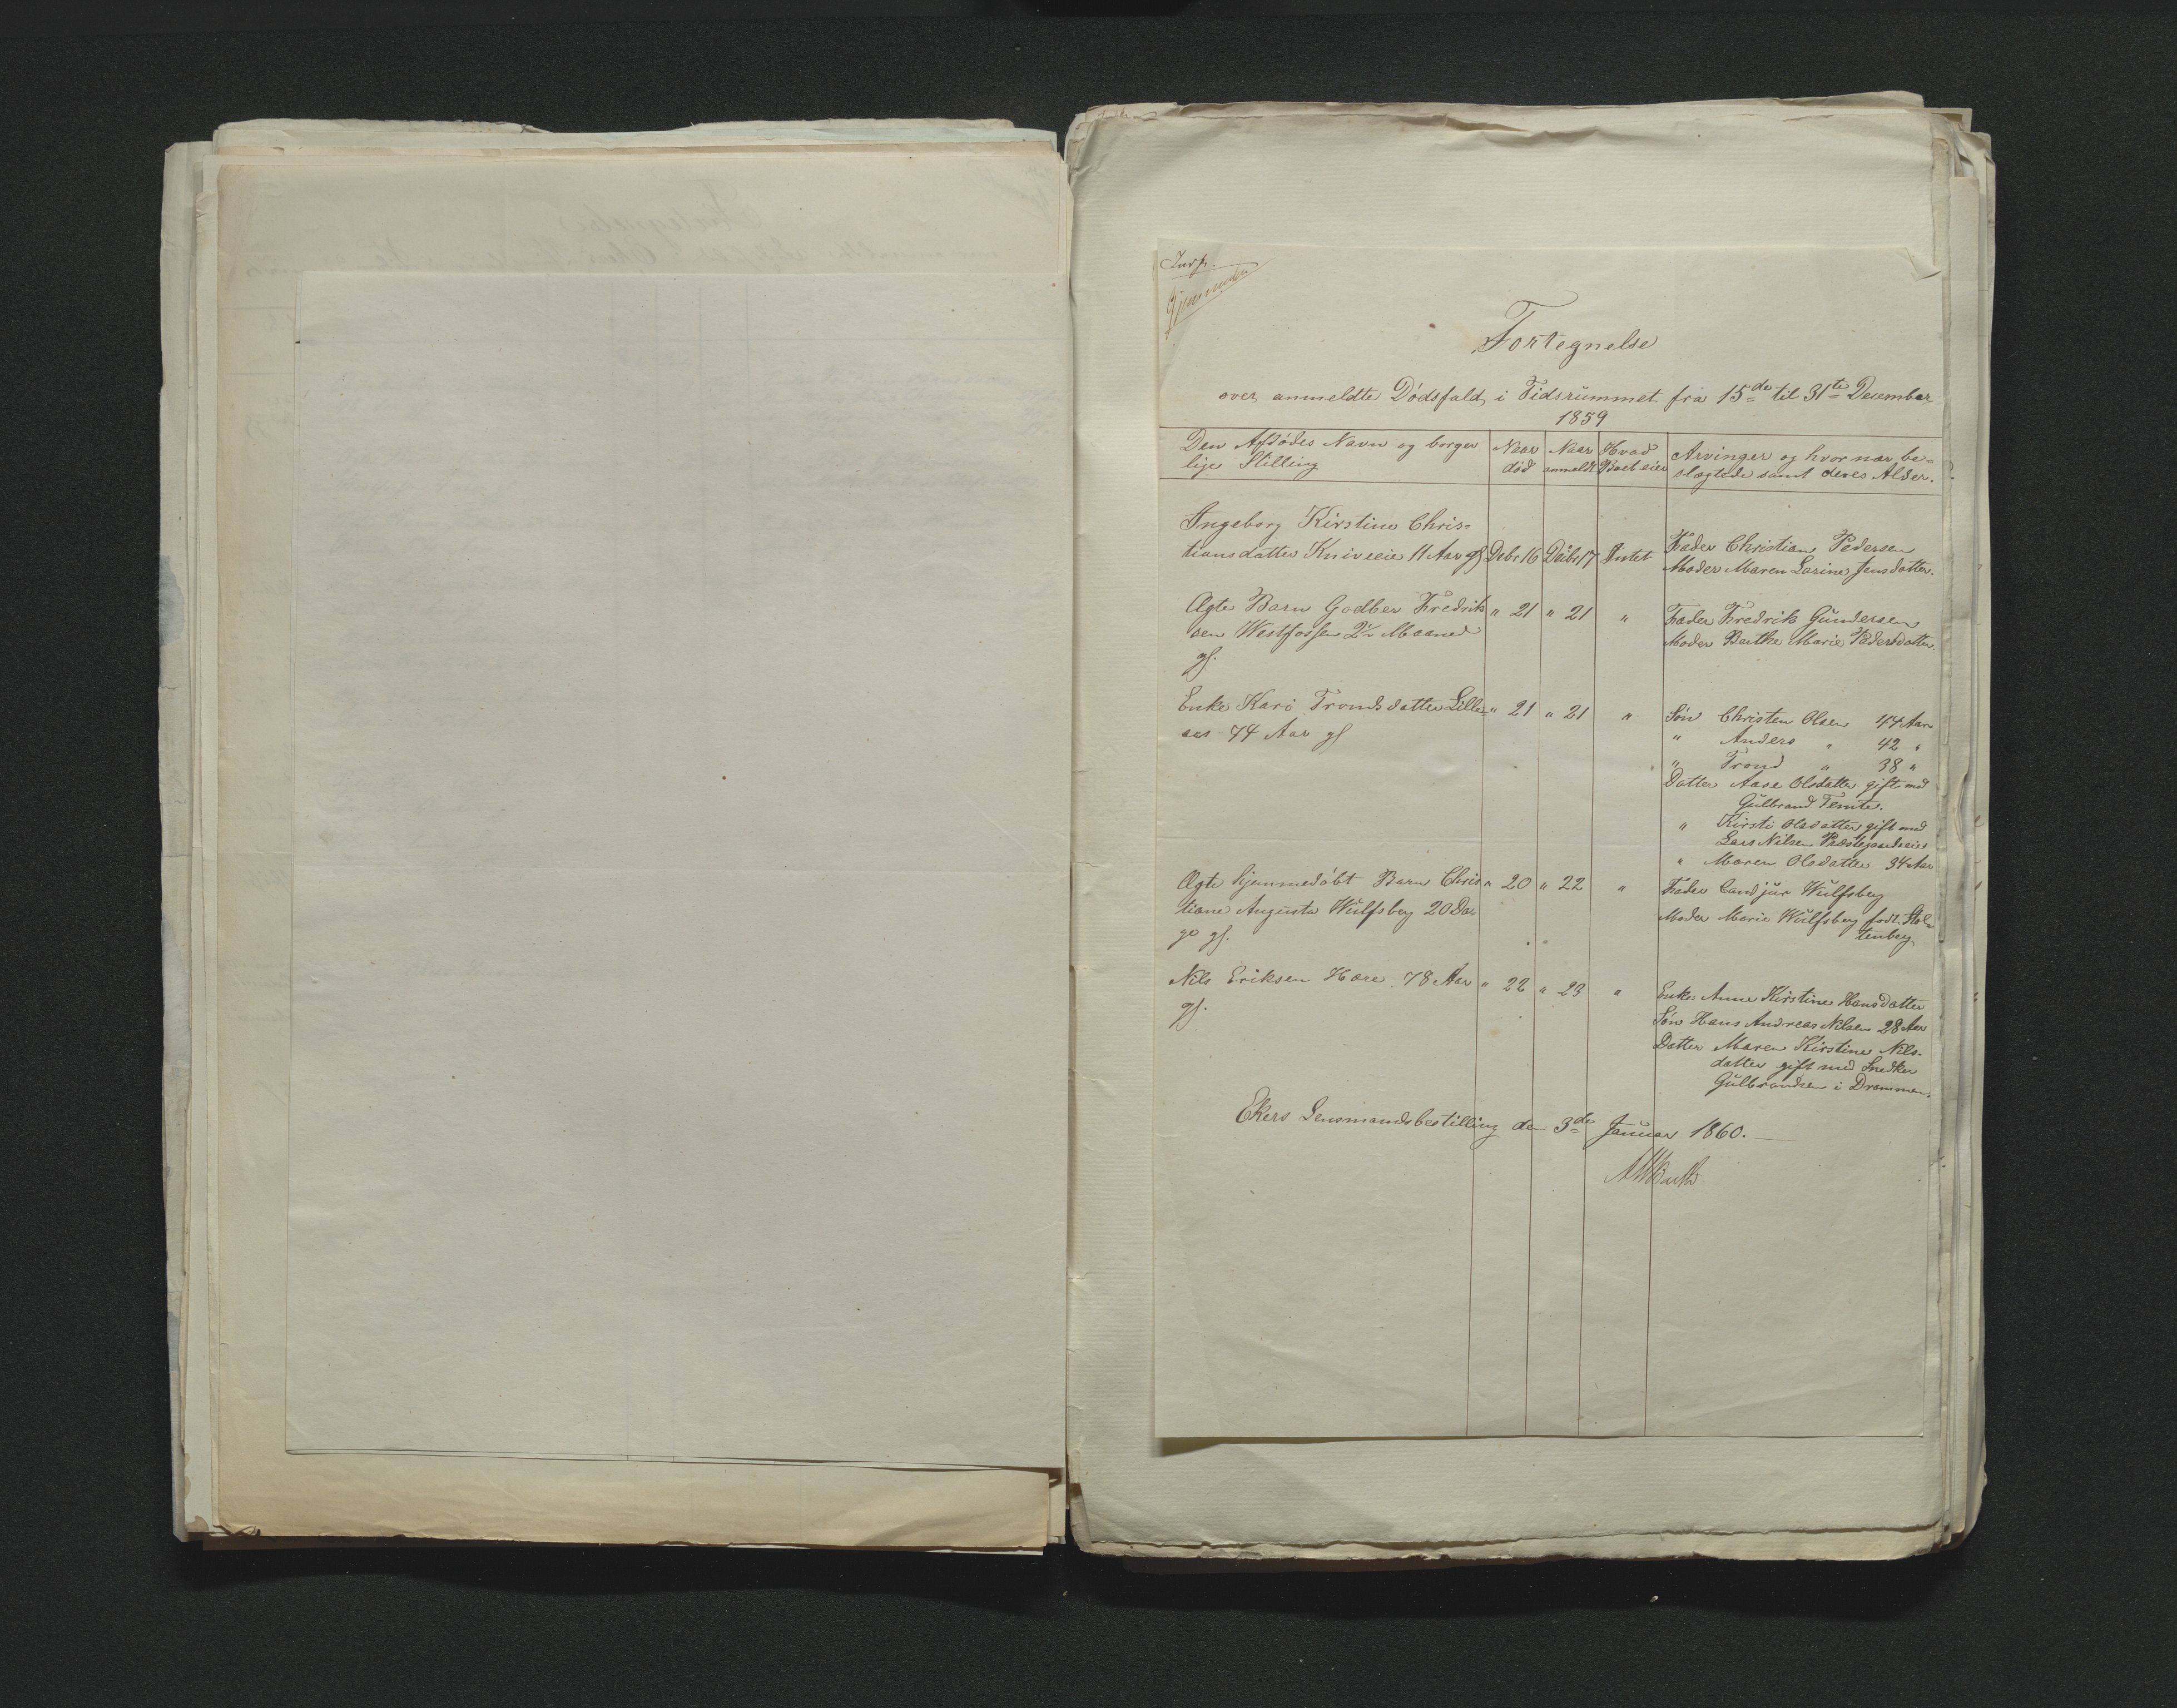 Fortegnelse
over anmeldte Dødsfald i Tidsrummet fra 15de til 31te December
1859
Den Afdødes Navn og borger
lige Stilling
Naar
død
Naar
anmeldt
Hvad
Boet eier
Arvinger og hvor nær be=
slægtede samt deres Alder.
Ingeborg Kirstine Chris=
tiansdatter Kniveeie 11 Aar gl Debr 16 Debr 17 Intet
Fader Christian Pedersen
Moder Maren Larine Jensdatter.
Ægte Barn Godber Fredrik
sen Westfossen 2½ Maaned
gl.
" 21 " 21 "
Fader Fredrik Gundersen
Moder Berthe Marie Pedersdatter
Enke Kari Trondsdatter Lille=
aas 74 Aar gl
" 21 " 21 "
Søn Christen Olsen 44 Aar
" Anders " 42 "
" Trond " 38 "
Datter Aase Olsdatter gift med
Gulbrand Temte.
" Kirsti Olsdatter gift med
Lars Nilsen Præstegaardseiet
" Maren Olsdatter 34 Aar
Ægte hjemmedøbt Barn Chris
tiane Augusta Wulfsberg 20 Da
ge gl.
" 20 " 22 "
Fader Cand jur Wulfsberg
Moder Marie Wulfsberg født Stol=
tenberg
Nils Eriksen Hære 78 Aar
gl.
" 22 " 23 "
Enke Anne Kirstine Hansdatter
Søn Hans Andreas Nilsen 28 Aar
Datter Maren Kirstine Nils-
datter gift med Snedker
Gulbrandsen i Drammen.
Ekers Lensmandsbestilling den 3de Januar 1860.